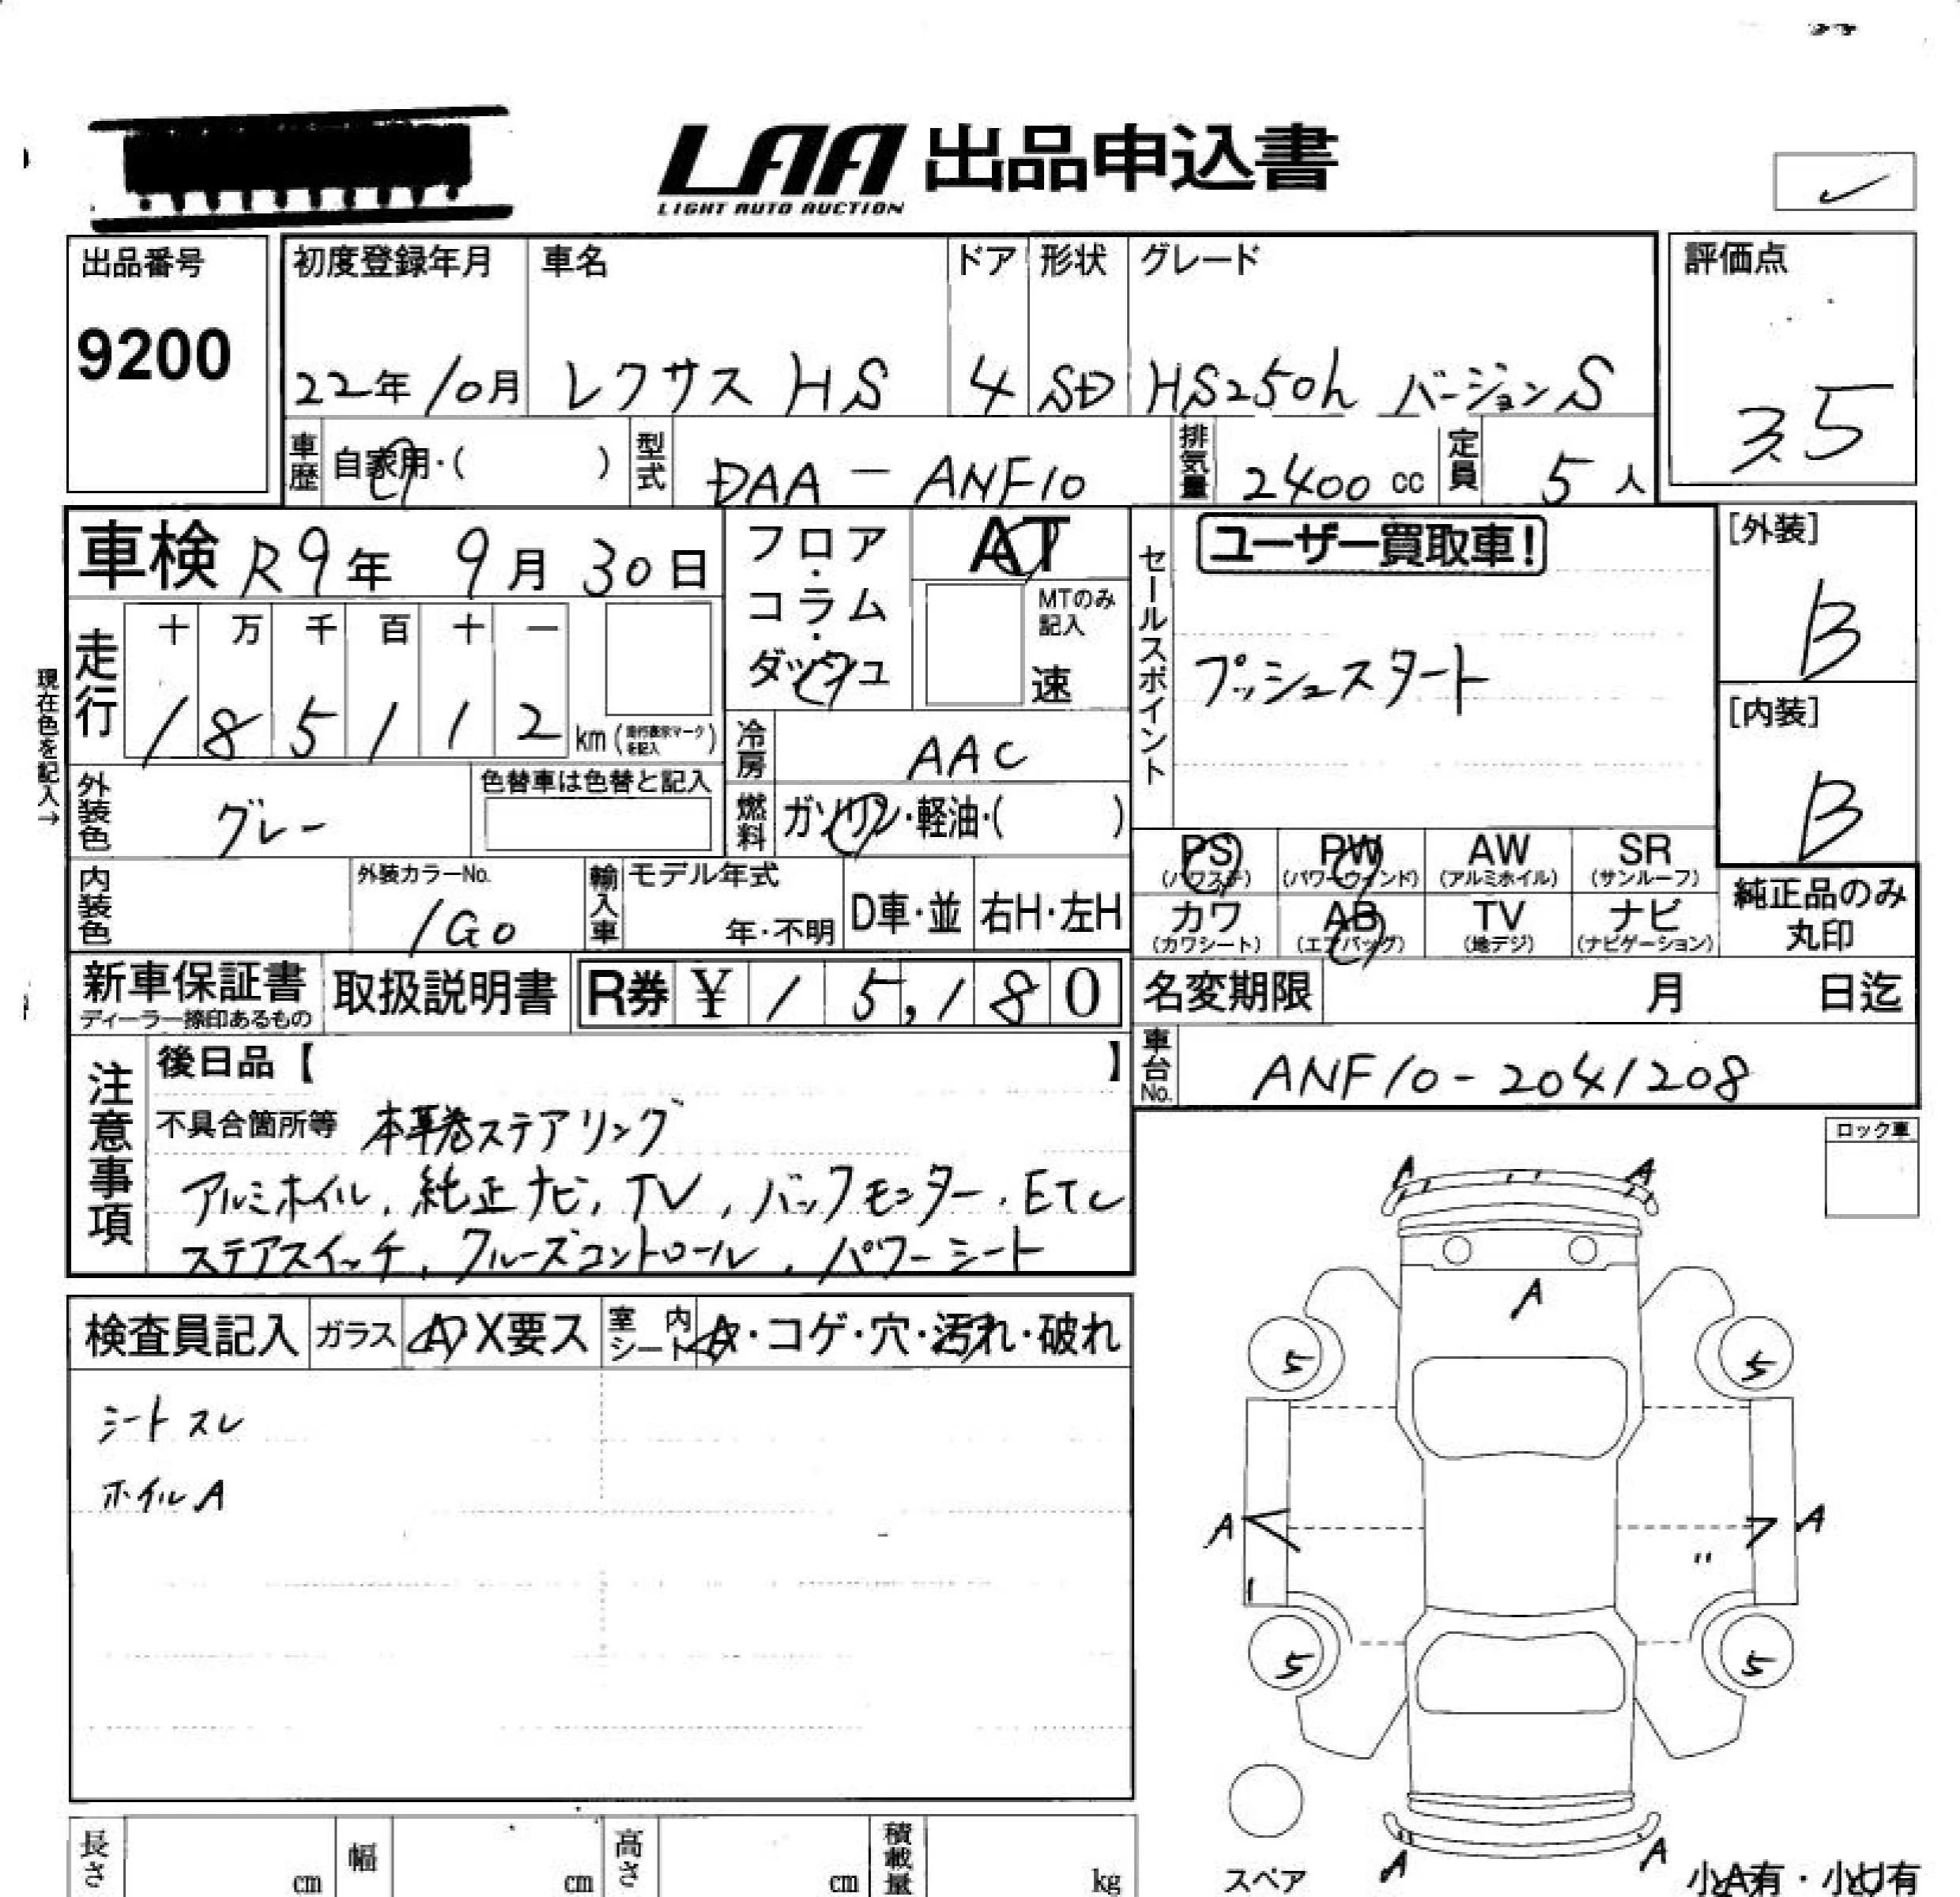 LAA 出品申込書
LIGHT AUTO AUCTION
出品番号 9200
初度登録年月 22年10月
車名 レクサス HS
ドア 4
形状 SD
グレード HS250h バージョンS
評価点 3.5
車歴 自家用・( )
型式 DAA-ANF10
排気量 2400 cc
定員 5人
車検 R9年 9月 30日
フロア・コラム・ダッシュ
AT
MTのみ記入 速
セールスポイント
ユーザー買取車!
プッシュスタート
[外装] B
[内装] B
現在色を記入→
走行 十 万 千 百 十 一
185112 km (走行表示マークを記入)
冷房 AAC
外装色 グレー
色替車は色替と記入
燃料 ガソリン・軽油・( )
内装色
外装カラーNo. 1G0
輸入車 モデル年式 年・不明
D車・並 右H・左H
PS (パワステ) PW (パワーウインド) AW (アルミホイル) SR (サンルーフ)
カワ (カワシート) AB (エアバッグ) TV (地デジ) ナビ (ナビゲーション)
純正品のみ丸印
新車保証書 ディーラー捺印あるもの
取扱説明書
R券 ¥ 15,180
名変期限 月 日迄
車台No. ANF10-2041208
注意事項
後日品【 】
不具合箇所等 本革巻ステアリング
アルミホイル, 純正ナビ, TV, バックモニター, ETC
ステアスイッチ, クルーズコントロール, パワーシート
ロック車
検査員記入 ガラス A X要ス 室内シート A・コゲ・穴・汚れ・破れ
シートスレ
ホイルA
A A
A
5 5
A A
〃
5 5
A A
スペア
小A有・小U有
長さ cm 幅 cm 高さ cm 積載量 kg